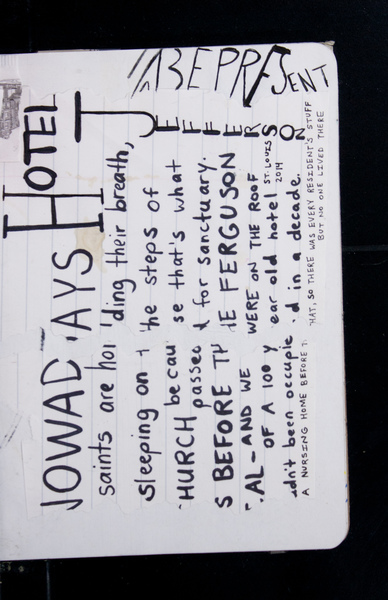 /ABE PRESENT
HOTEL JEFFERSON
NOWADAYS
saints are hol ding their breath,
sleeping on t he steps of
CHURCH becau se that's what
passed for sanctuary.
S BEFORE TH E FERGUSON
AL-AND WE WERE ON THE ROOF
OF A 100 y ear old hotel ST. LOUIS 2014
adn't been occupie d in a decade.
A NURSING HOME BEFORE T HAT, SO THERE WAS EVERY RESIDENT'S STUFF
BUT NO ONE LIVED THERE